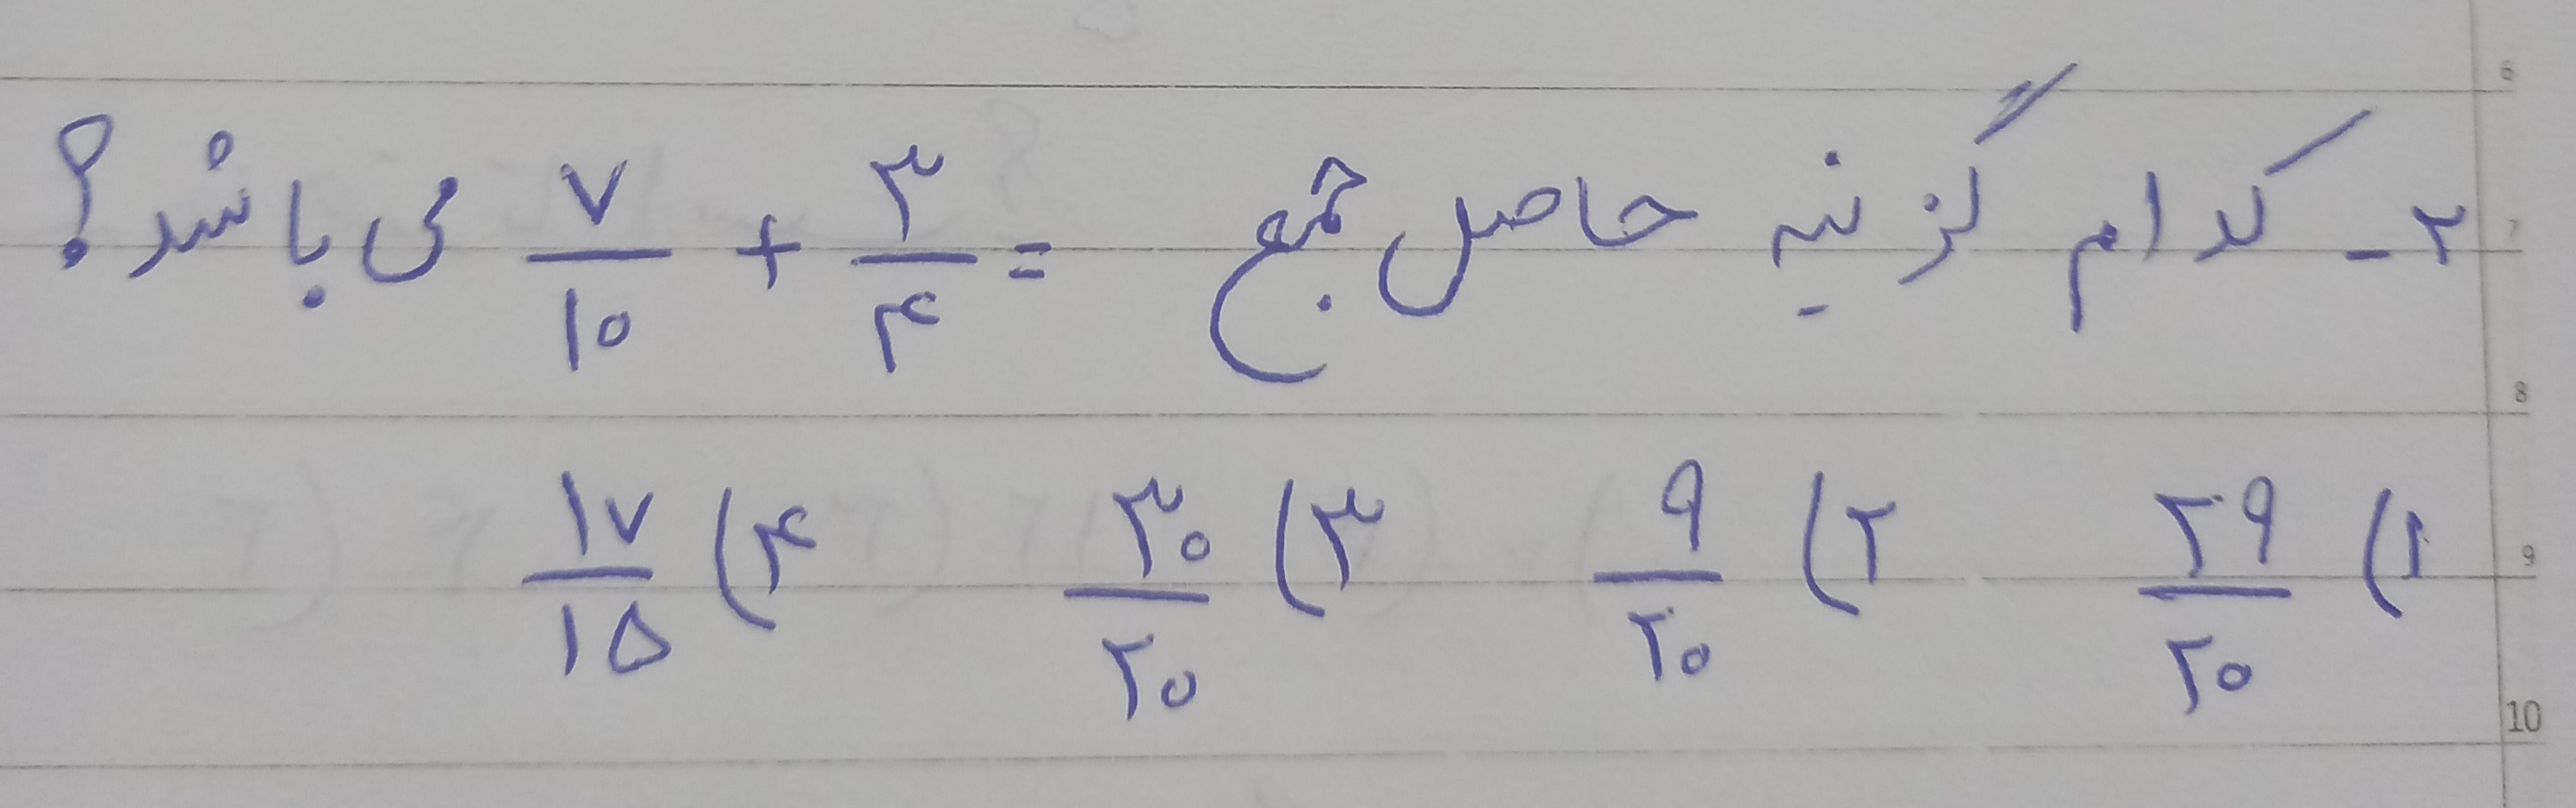 ۲- کدام گزینه حاصل جمع = ۳/۴ + ۷/۱۰ می باشد؟
۱) ۲۹/۲۰ ۲) ۹/۲۰ ۳) ۳۰/۲۰ ۴) ۱۷/۱۵
6
7
8
9
10